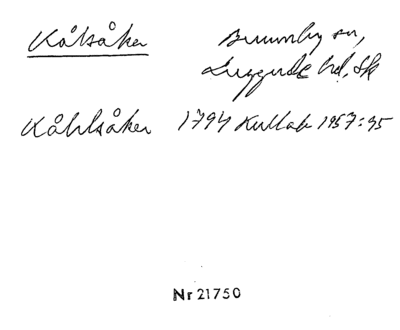 Kålsåker Brunnby sn,
Luggude hd, Sk
Kåhlsåker 1794 Kullab 1957:95
Nr 21750